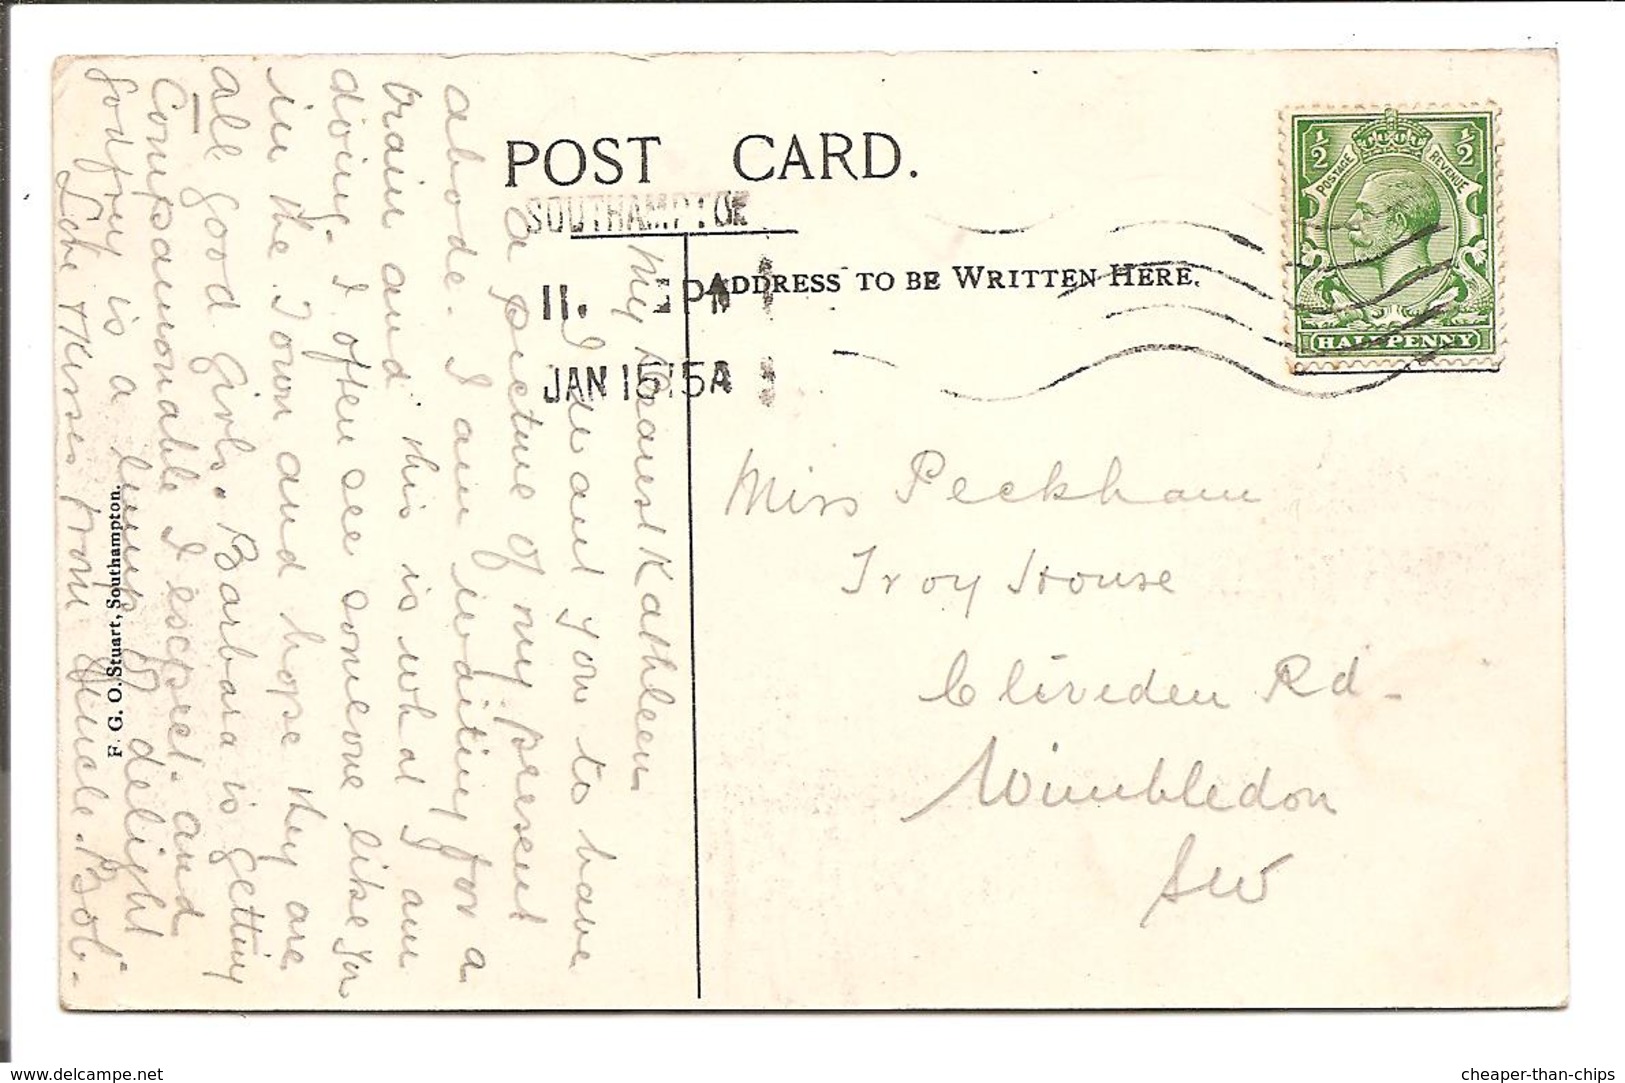 POST CARD.
SOUTHAMPTON
11. PM
JAN 15 15A
ADDRESS TO BE WRITTEN HERE.
½ ½
POSTAGE REVENUE
HALFPENNY
Miss Peckham
Troy House
Cliveden Rd-
Wimbledon
SW
My Dearest Kathleen
I de ant you to have
a picture of my present
abode. I am waiting for a
train and this is what I am
doing. I often see someone like you
in the Town and hope they are
all good girls. Barbara is getting
Companionable I expect. and
Godfrey is a lump of delight
Love & Kisses from Uncle. Bob-
F. G. O. Stuart, Southampton.
www.delcampe.net
cheaper-than-chips